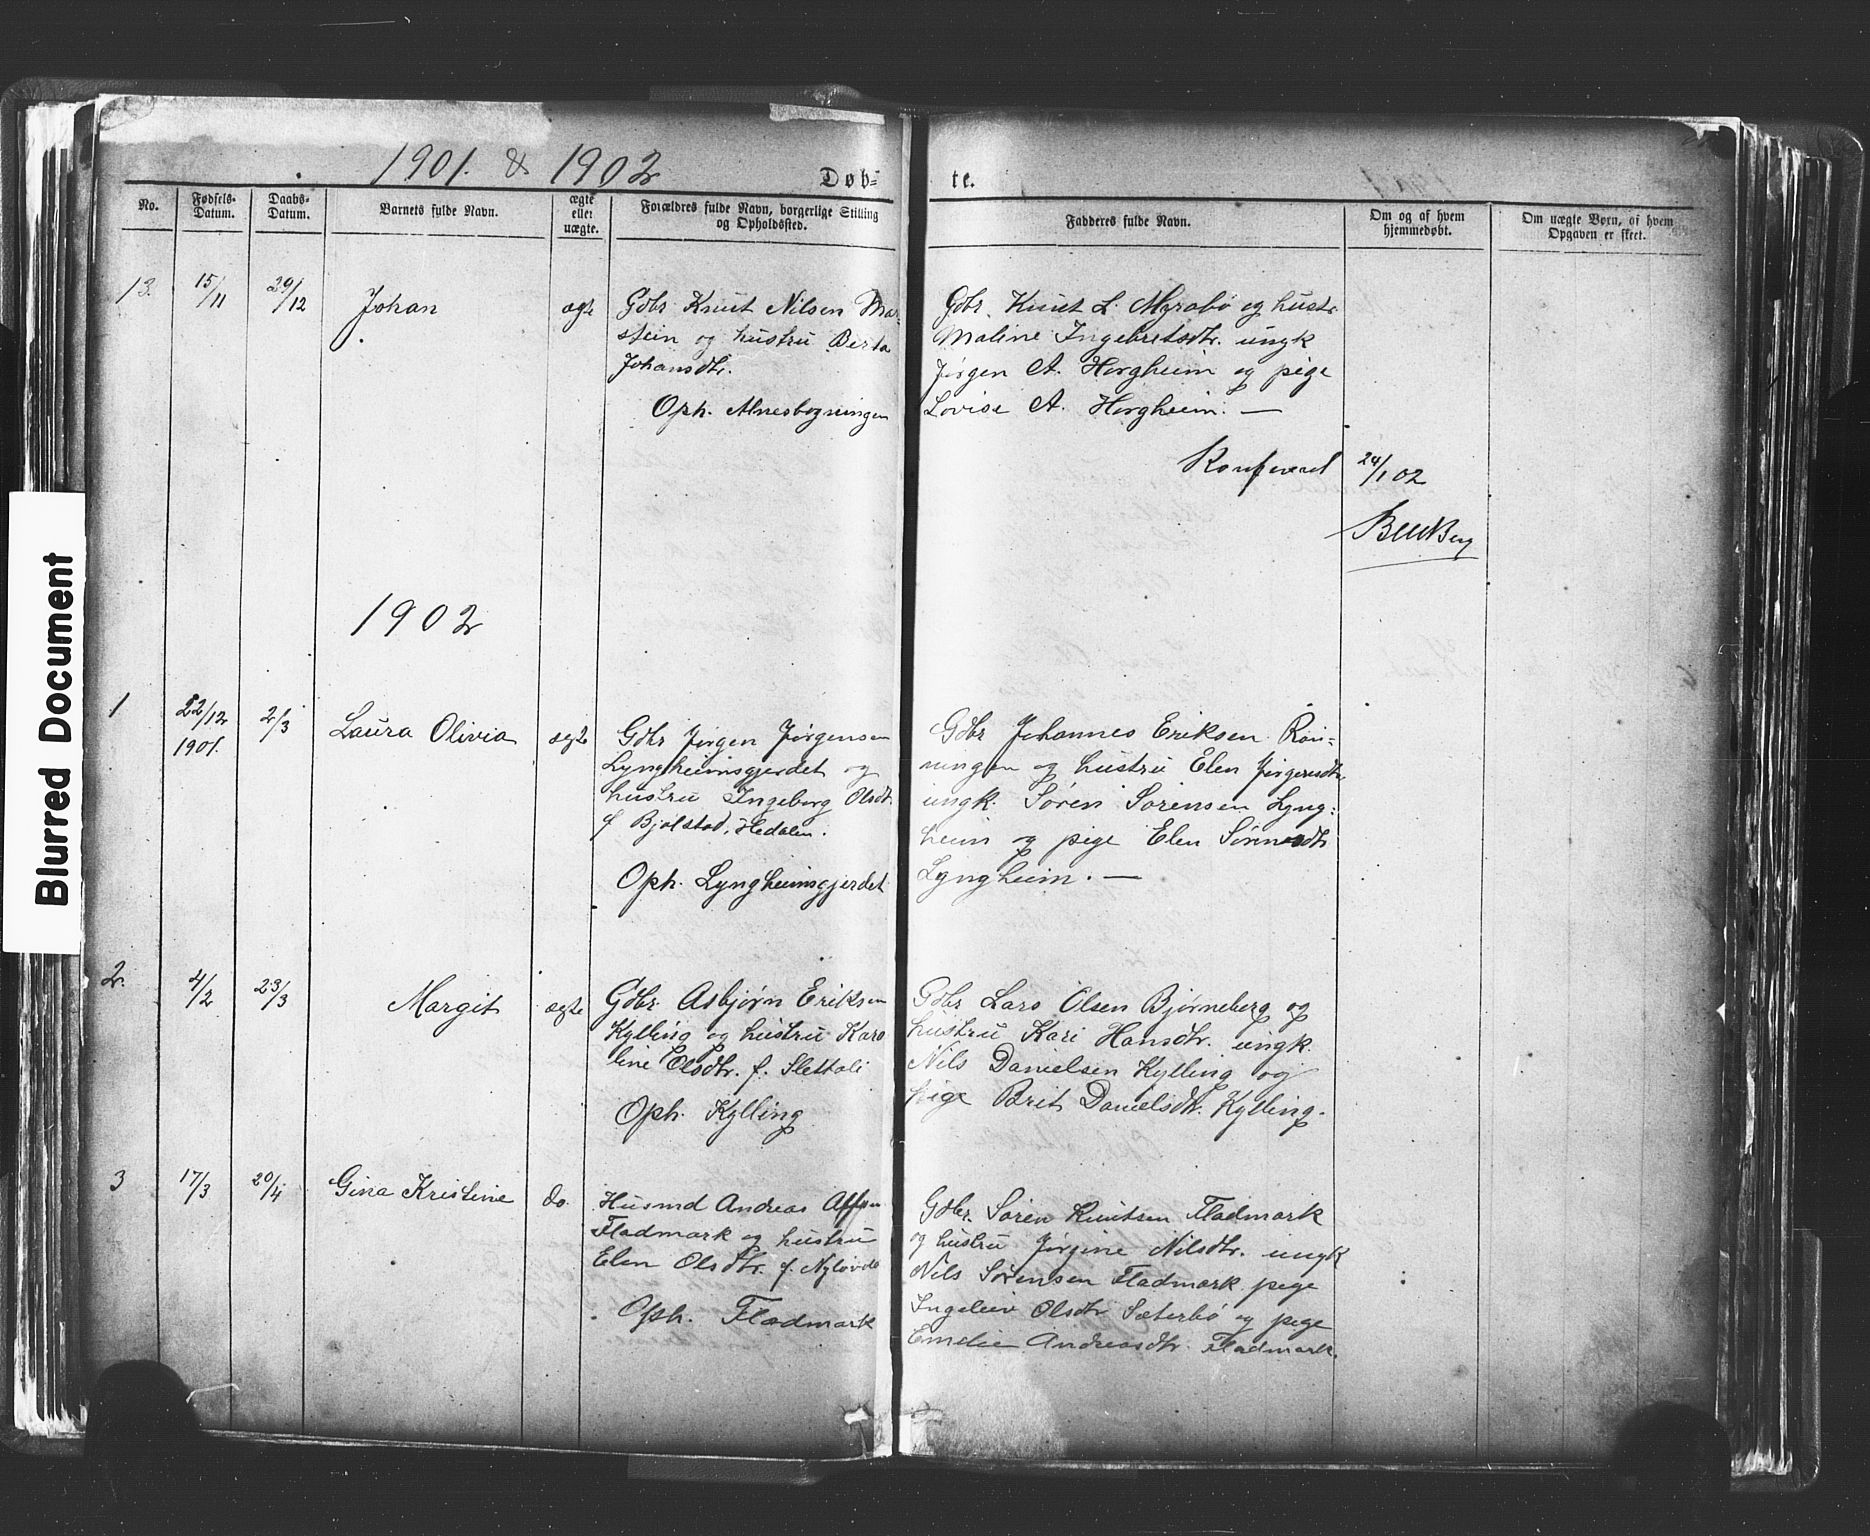 1901. & 1902
Døb-
te.
No.
Fødsels-
Datum.
Daabs-
Datum.
Barnets fulde Navn.
ægte
eller
uægte.
Forældres fulde Navn, borgerlige Stilling
og Opholdssted.
Fadderes fulde Navn.
Om og af hvem
hjemmedøbt.
Om uægte Børn, af hvem
Opgaven er skeet.
13.
15/11
29/12
Johan
ægte
Gdbr Knut Nilsen Mar-
stein og hustru Berta
Johansdtr.
Oph. Alnesbogningen
Gdbr. Knut L. Myrabø og hustr
Maline Ingebretsdtr. ungk
Jørgen A. Horgheim og pige
Lovise A. Horgheim. —
Konfereret 24/1 02
1902
1
22/12
1901.
2/3
Laura Olivia
ægte
Gdbr Jørgen Jørgensen
Lyngheimsgjerdet og
hustru Ingeborg Olsdt.
f Bjølstad, Hedalen.
Oph. Lyngheimsgjerdet
Gdbr Johannes Eriksen Røn-
ningen og hustru Elen Jørgensdtr.
ungk. Søren Sørensen Lyng:
heim og pige Elen Sørensdtr
Lyngheim. —
2.
4/2
23/3
Margit
ægte
Gdbr. Asbjørn Eriksen
Kylling og hustru Karo
line Olsdtr. f. Slettali
Oph. Kylling
Gdbr Lars Olsen Bjørneberg og
hustru Kari Hansdtr. ungk.
Nils Danielsen Kylling og
pige Brit Danielsdtr. Kylling.
3
17/3
20/4
Gina Kristine
do.
Husmd Andreas
Fladmark og hustru
Elen Olsdtr. f.
Oph. Fladmark
Gdbr. Søren Knutsen Fladmark
og hustru Jørgine Nilsdtr. ungk
Nils Sørensen Fladmark pige
Ingeleiv Olsdtr Sæterbø og pige
Emelie Andreasdtr. Fladmark.
Blurred Document